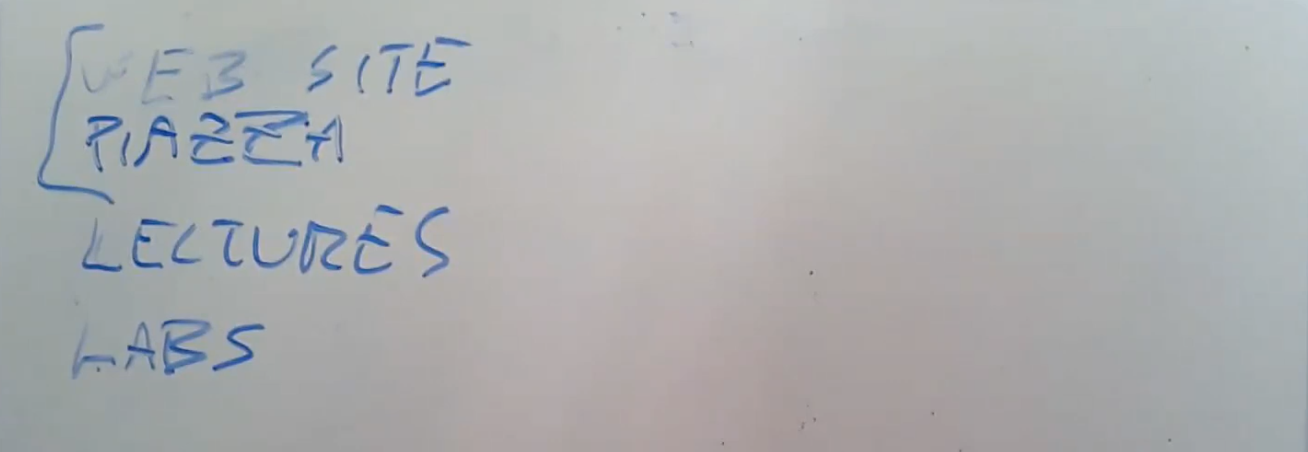 WEB SITE
PIAZZA
LECTURES
LABS